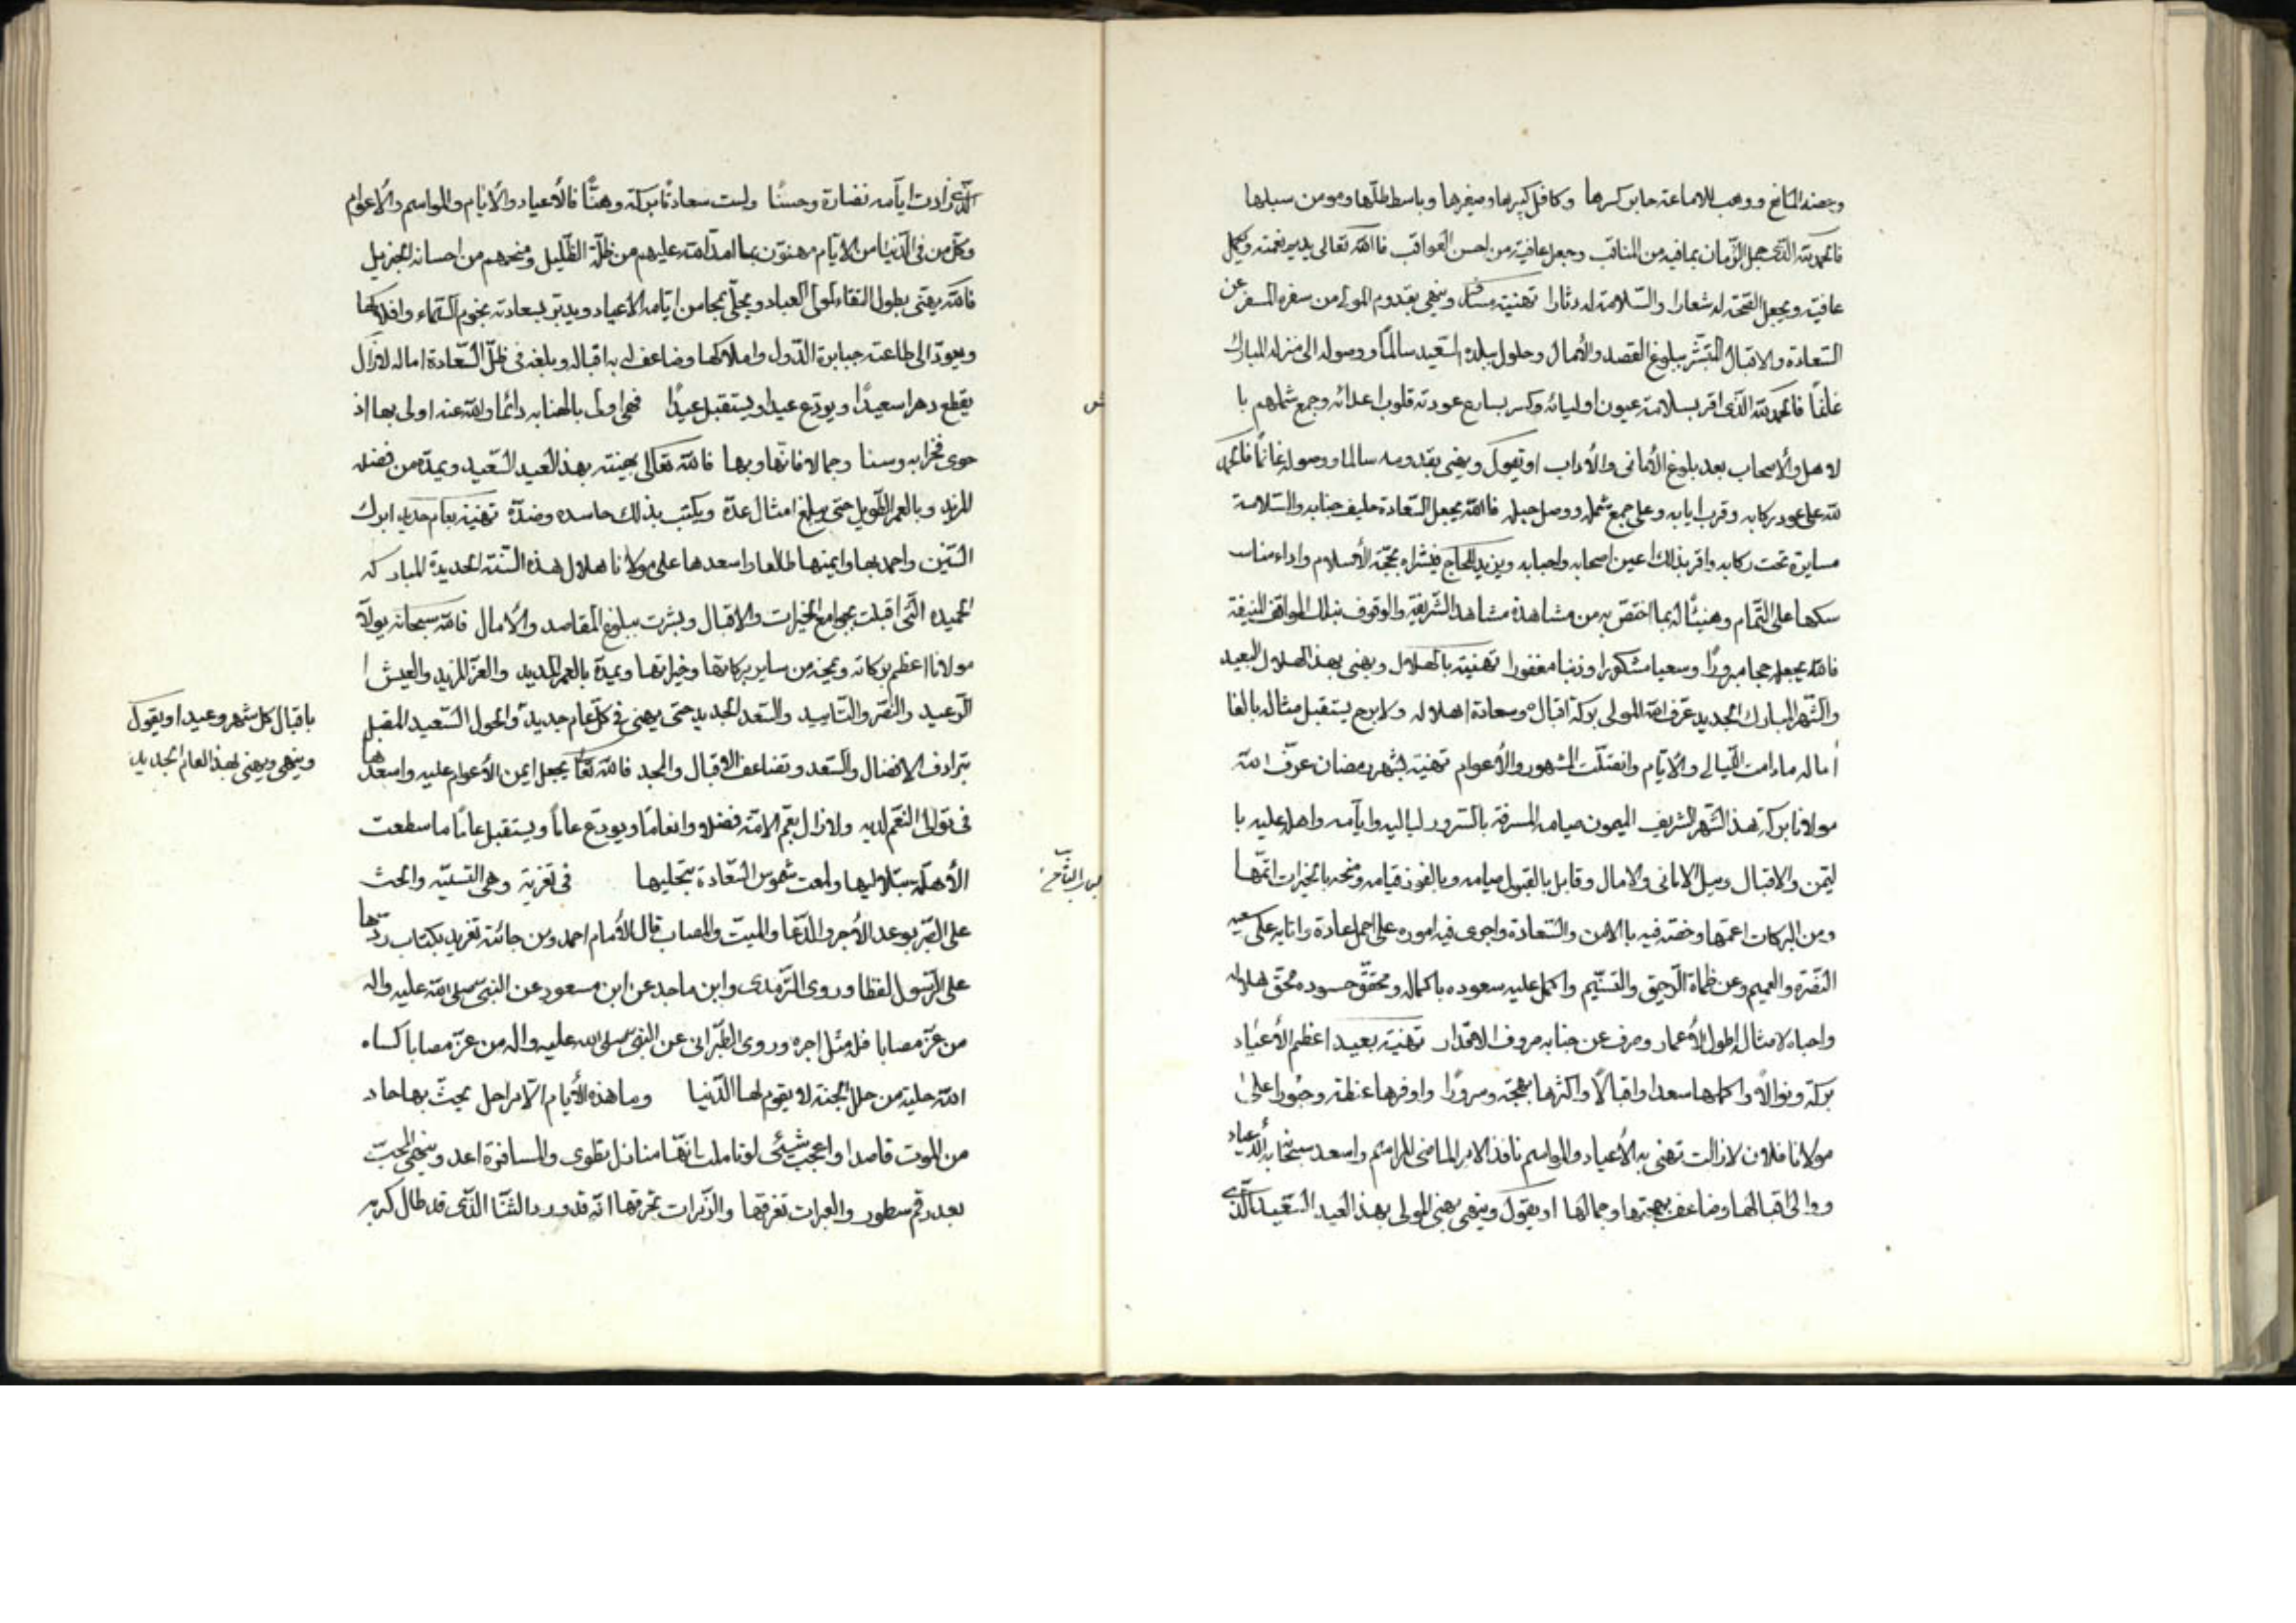 وحصنه المانع ووهب للاماعة جابر كسرها وكافل كبيرها وصغيرها وباسط ظلها ومومن سبلها
فالحمد لله الذى جمل الزمان بمافيه من المناقب وجعل عافيته من احسن العواقب فالله تعالى يديم نعمته ويكمل
عافيته ويجعل الصحة له شعارا والسلامة له دثارا تهنية وينهى بقدوم المولى من سفره المسفر عن
السعادة والاقبال المبشر ببلوغ القصد والأمال وحلوله ببلده السعيد سالمًا ووصوله الى منزله المبارك
غانمًا فالحمد لله الذى اقر بسلامته عيون اوليائه وكسر بسارع عودته قلوب اعدائه وجمع شملهم با
لاهل والأصحاب بعد بلوغ الأمانى والأراب او يقول وينهى بقدومه سالما ووصوله غانمًا فالحمد
لله على عود ركابه وقرب ايابه وعلى جمع شمله ووصل حبله فالله يجعل السعادة حليف جنابه والسلامة
مسايرة تحت ركابه واقر بذلك اعين اصحابه واحبابه ويزيد للحاج فبشراه بحجة الأسلام واداء مناسـ
سكها على التمام وهنيئًا له بما اختص به من مشاهدة مشاهد الشريفة والوقوف بتلك المواقف المنيفة
فالله يجعله حجا مبرورًا وسعيا مشكورا وذنبا مغفورا تهنية بالهلال ويهنى بهذ الهلال السعيد
والشهر المبارك الجديد عرف الله المولى بركة اقباله وسعادة اهلاله ولا برح يستقبل مثاله بالغا
أماله مادامت الليالى والأيام واتصلت الشهور والأعوام تهنية بشهر رمضان عرف الله
مولانا بركة هذ الشهر الشريف الميمون صيامه المسرفة بالسرور لياليه وايامه واهله عليه با
ليمن والاقبال ونيل الامانى والامال وقابل بالقبول صيامه وبالفوز قيامه ومنحه بالخيرات اتمها
ومن البركات اعمها وخصه فيه بالامن والسعادة واجرى فيه اموره على اجمل عادة واثابه على سعيه
النضرة والنعيم وعن ظماة الرحيق والتسنيم واكمل عليه سعوده باكماله ومحقق حسوده محقق هلاله
واحياه لامثاله اطول الأعمار وصرف عن جنابه صروف الاقدار تهنية بعيد اعظم الأعياد
بركة ونوالًا واكملها سعدا واقبالًا واكثرها بهجة وسرورًا واوفرها عظمة وحبورا على
مولانا فلان لازالت تهنى به الأعياد والمواسم نافذ الامر الماضى المراسم واسعد سبحانه الأعياد
ووالى اقبالها وضاعف بهجتها وجمالها او يقول وينهى يهنى المولى بهذ العيد السعيد الذى
الذى زادت ايامه نضارة وحسنًا بركة وهنًا فالأعياد والأيام والمواسم والأعوام
وكل من فى الدنيا من الأيام مهنون بما امد الله عليهم من ظله الظليل ومنحهم من احسانه الجزيل
فالله يهنى بطول البقاء المولى العباد ويحلى بمحاسن ايامه الاعياد ويديم بسعادته نجوم السماء وافلاكها
ويعود الى طاعته جبابرة الدول واملاكها وضاعف له به اقباله وبلغه فى ظل السعادة اماله لازال
يقطع دهرا سعيدًا ويودع عيدا ويستقبل عيدًا فهى اولى بالهنا به دائما والله عنه اولى بها اذ
حوى فخرا به وسنا وجمالا فاتها وبها فالله تعالى يهنيه بهذ العيد السعيد ويمده من فضله
المزيد وبالعمر الطويل حتى يبلغ امثال عدة ويكتب بذلك حاسده وضده تهنية بعام جديد ابرك
السنين واحمدها وايمنها طالعا واسعدها على مولانا هلال هذه السنة الجديدة المباركه
الحميده التى اقبلت بجوامع الخيرات والاقبال وبشرت ببلوغ المقاصد والأمال فالله سبحانه يولا
مولانا اعظم بركاته ويمنحه من ساير بركاتها وخيراتها ويمده بالعمر المديد والعز المزيد والعيش ا
لرغيد والنصر والتأييد والسعد الجديد حتى يهنى فى كل عام جديد والحول السعيد المقبل
بترادف الافضال والسعد وتضاعف الاقبال والمجد فالله تعا يجعل ايمن الأعوام عليه واسعدها
فى توالى النعم لديه ولازال يعم الامة فضلا وانعامًا ويودع عامًا ويستقبل عامًا ما سطعت
الأهلة ولمعت شموس السعادة بتجليها فى تعزية وهى التسلية والحث
على الصبر بوعد الأجر والدعا والميت والمصاب قال الأمام احمد ومن جائته تعزية بكتاب ردها
على الرسول لفظا وروى الترمذى وابن ماجه عن ابن مسعود عن النبى صلى الله عليه واله
من عز مصابا فله مثل اجره وروى الطبرانى عن النبى صلى الله عليه واله من عز مصابا كساه
الله حلية من حلل الجنة لا يقوم لها الدنيا وما هذه الأيام الا مراحل يحث بها حاد
من الموت قاصدا واعجب شيئى لو تاملت انها منازل تطوى والمسافر قاعد وينهى المحب
بعد رقم سطور والعبرات تغرقها والزفرات تحرقها انه قد ورد الثنا الذى قد طال كربه
باقبال كل شهر وعيد او يقول
وينهى ويهنى بهذ العام الجديد